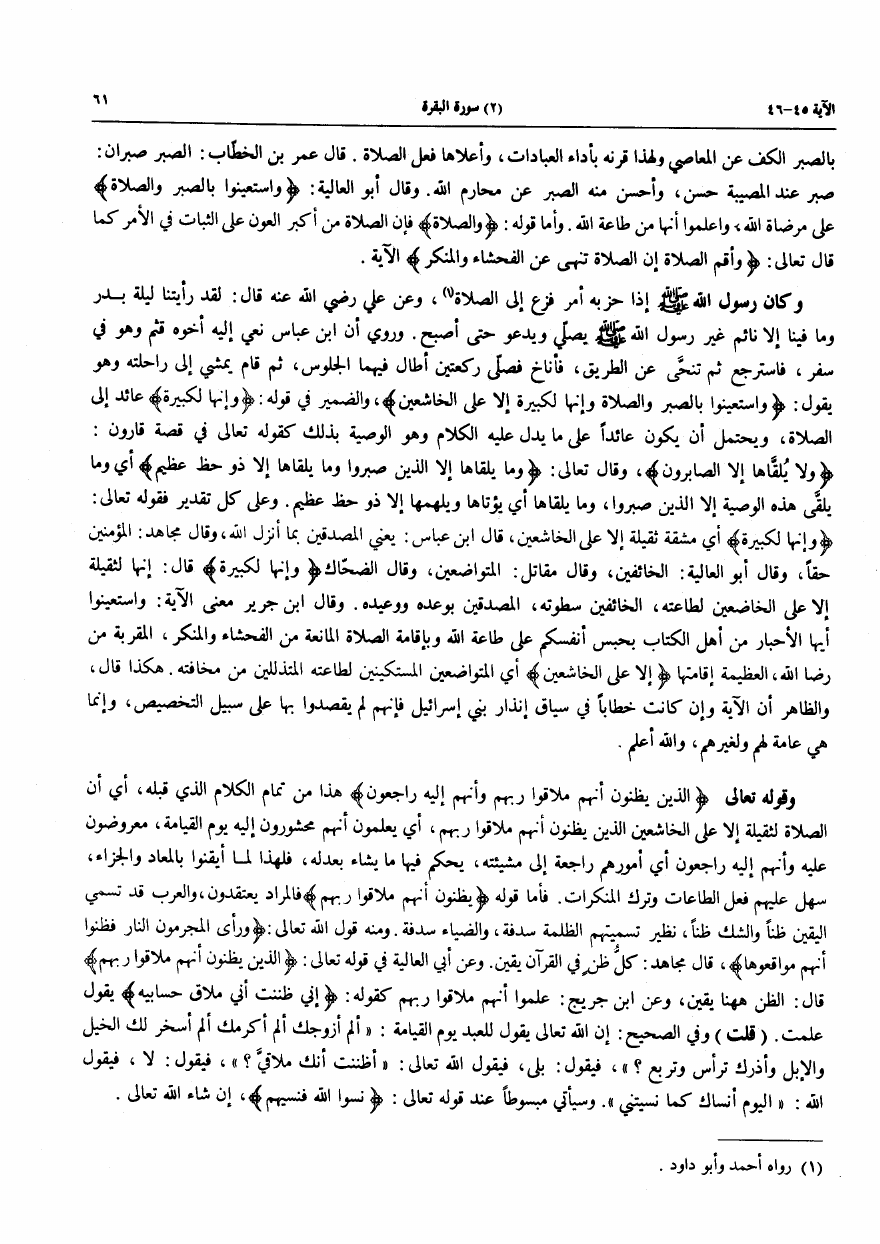 الآية ٤٥-٤٦ (٢) سورة البقرة ٦١
بالصبر الكف عن المعاصي ولهذا قرنه بأداء العبادات، وأعلاها فعل الصلاة . قال عمر بن الخطّاب: الصبر صبران:
صبر عند المصيبة حسن، وأحسن منه الصبر عن محارم الله. وقال أبو العالية: ﴿ واستعينوا بالصبر والصلاة ﴾
على مرضاة الله، واعلموا أنها من طاعة الله . وأما قوله : ﴿ والصلاة﴾ فإن الصلاة من أكبر العون على الثبات في الأمر كما
قال تعالى: ﴿ وأقم الصلاة إن الصلاة تنهى عن الفحشاء والمنكر ﴾ الآية .
وكان رسول الله ﷺ إذا حزبه أمر فزع إلى الصلاة(١) ، وعن علي رضي الله عنه قال: لقد رأيتنا ليلة بــدر
وما فينا إلا نائم غير رسول الله ﷺ يصلّي ويدعو حتى أصبح. وروي أن ابن عباس نعي إليه أخوه قثم وهو في
سفر ، فاسترجع ثم تنحَّى عن الطريق، فأناخ فصلّى ركعتين أطال فيهما الجلوس، ثم قام يمشي إلى راحلته وهو
يقول: ﴿ واستعينوا بالصبر والصلاة وإنها لكبيرة إلا على الخاشعين﴾، والضمير في قوله: ﴿وإنها لكبيرة﴾ عائد إلى
الصلاة، ويحتمل أن يكون عائداً على ما يدل عليه الكلام وهو الوصية بذلك كقوله تعالى في قصة قارون :
﴿ولا يُلقَّاها إلا الصابرون﴾، وقال تعالى: ﴿وما يلقاها إلا الذين صبروا وما يلقاها إلا ذو حظ عظيم﴾ أي وما
يلقَّى هذه الوصية إلا الذين صبروا، وما يلقاها أي يؤتاها ويلهمها إلا ذو حظ عظيم. وعلى كل تقدير فقوله تعالى:
﴿وإنها لكبيرة﴾ أي مشقة ثقيلة إلا على الخاشعين، قال ابن عباس: يعني المصدقين بما أنزل الله، وقال مجاهد: المؤمنين
حقاً، وقال أبو العالية: الخائفين، وقال مقاتل: المتواضعين، وقال الضحّاك ﴿ وإنها لكبيرة ﴾ قال: إنها لثقيلة
إلا على الخاضعين لطاعته، الخائفين سطوته، المصدقين بوعده ووعيده. وقال ابن جرير معنى الآية: واستعينوا
أيها الأحبار من أهل الكتاب بحبس أنفسكم على طاعة الله وبإقامة الصلاة المانعة من الفحشاء والمنكر ، المقربة من
رضا الله، العظيمة إقامتها ﴿ إلا على الخاشعين﴾ أي المتواضعين المستكينين لطاعته المتذللين من مخافته. هكذا قال،
والظاهر أن الآية وإن كانت خطاباً في سياق إنذار بني إسرائيل فإنهم لم يقصدوا بها على سبيل التخصيص، وإنما
هي عامة لهم ولغيرهم، والله أعلم .
وقوله تعالى ﴿ الذين يظنون أنهم ملاقوا ربهم وأنهم إليه راجعون﴾ هذا من تمام الكلام الذي قبله، أي أن
الصلاة لثقيلة إلا على الخاشعين الذين يظنون أنهم ملاقوا ربهم، أي يعلمون أنهم محشورون إليه يوم القيامة، معروضون
عليه وأنهم إليه راجعون أي أمورهم راجعة إلى مشيئته، يحكم فيها ما يشاء بعدله، فلهذا لمـا أيقنوا بالمعاد والجزاء،
سهل عليهم فعل الطاعات وترك المنكرات. فأما قوله ﴿يظنون أنهم ملاقوا ربهم﴾ فالمراد يعتقدون، والعرب قد تسمي
اليقين ظناً والشك ظناً، نظير تسميتهم الظلمة سدفة، والضياء سدفة. ومنه قول الله تعالى: ﴿ورأى المجرمون النار فظنوا
أنهم مواقعوها﴾، قال مجاهد: كلُّ ظنٍ في القرآن يقين. وعن أبي العالية في قوله تعالى: ﴿الذين يظنون أنهم ملاقوا ربهم﴾
قال: الظن ههنا يقين، وعن ابن جريج: علموا أنهم ملاقوا ربهم كقوله: ﴿ إني ظننت أني ملاق حسابيه﴾ يقول
علمت. ( قلت ) وفي الصحيح: إن الله تعالى يقول للعبد يوم القيامة : « ألم أزوجك ألم أكرمك ألم أسخر لك الخيل
والإبل وأذرك ترأس وتربع ؟ »، فيقول: بلى، فيقول الله تعالى: « أظننت أنك ملاقيَّ ؟ » ، فيقول: لا ، فيقول
الله : « اليوم أنساك كما نسيتني ». وسيأتي مبسوطاً عند قوله تعالى : ﴿ نسوا الله فنسيهم﴾، إن شاء الله تعالى .
(١) رواه أحمد وأبو داود .